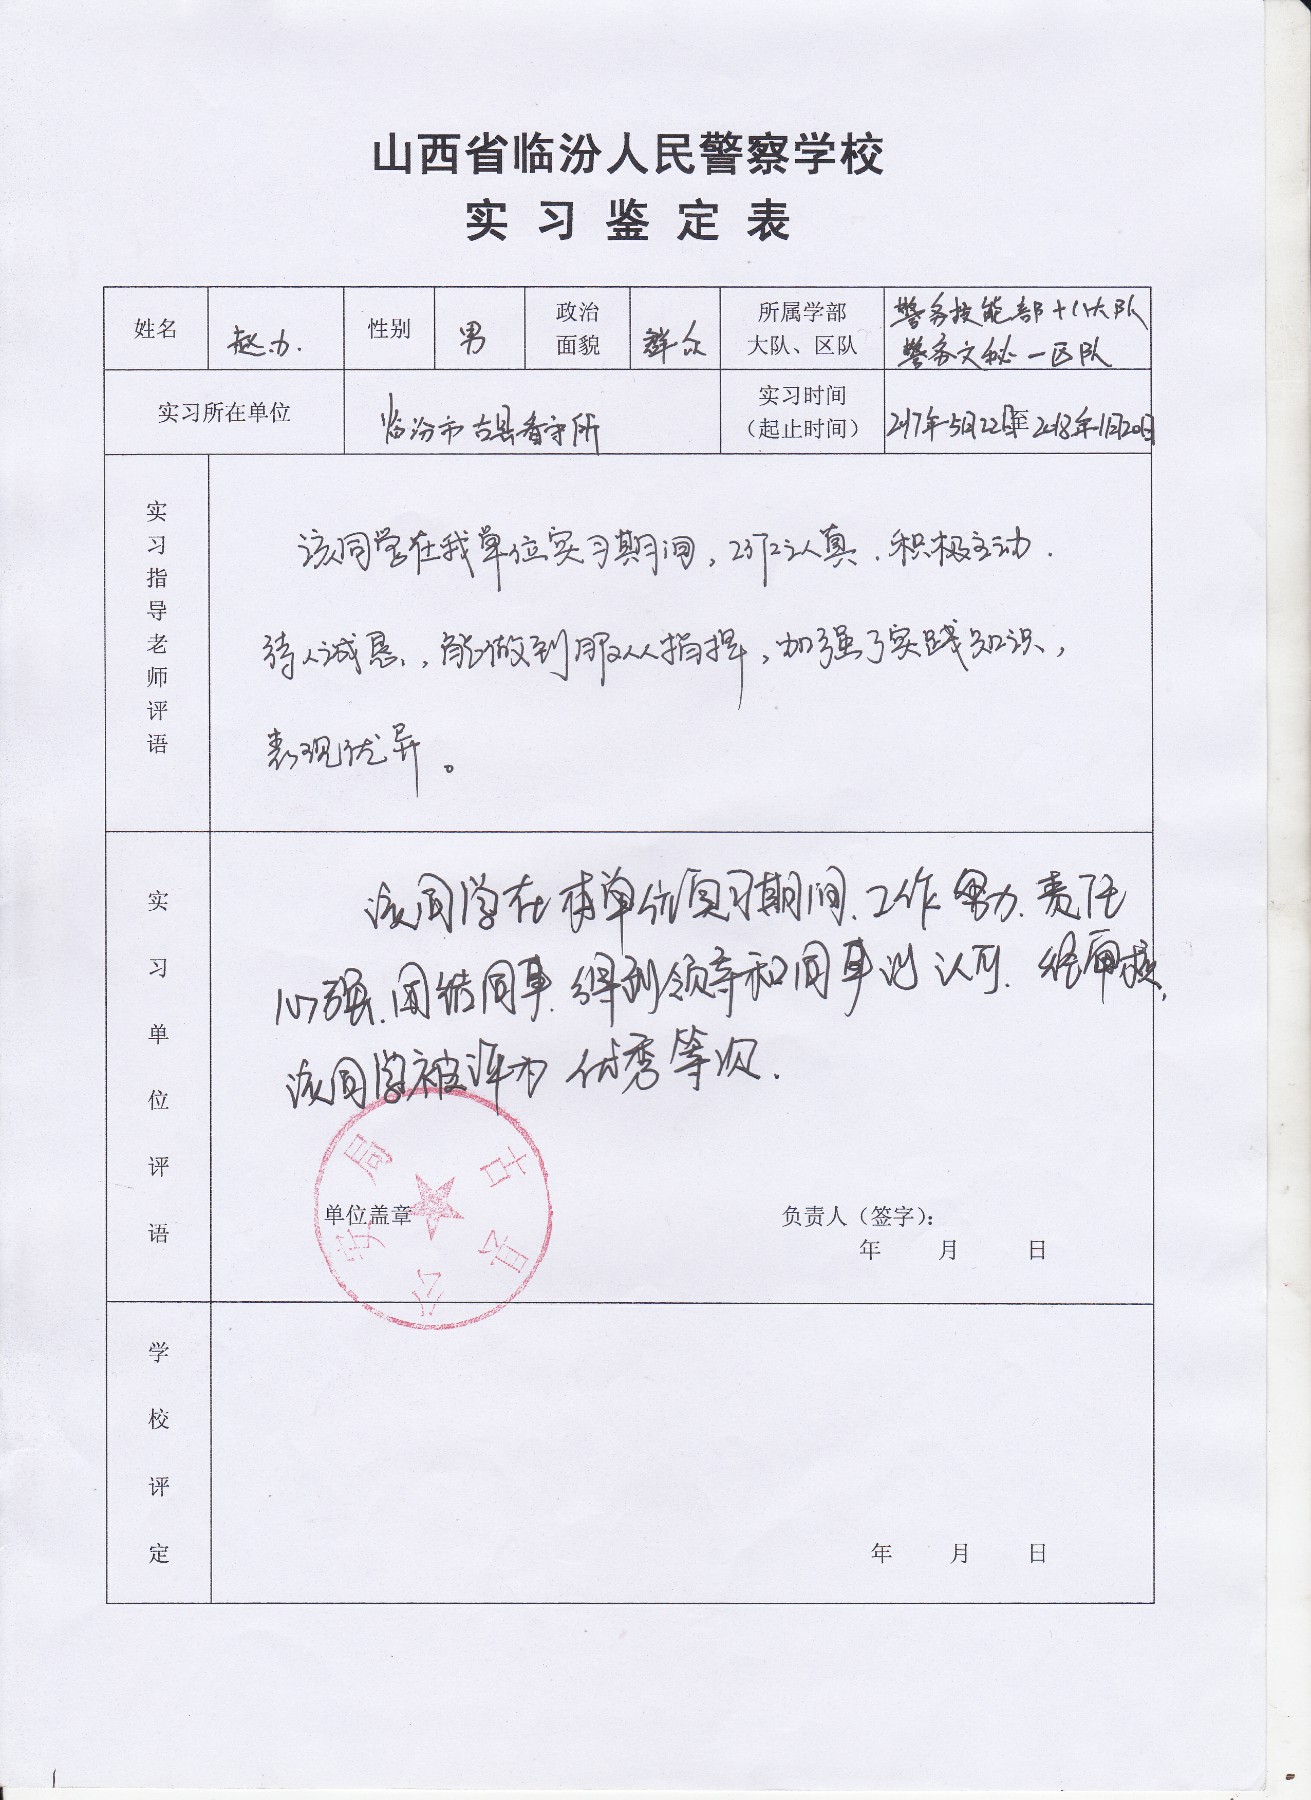 山西省临汾人民警察学校
实习鉴定表
姓名 赵力. 性别 男 政治面貌 群众 所属学部大队、区队 警务技能部十八大队
警务文秘一区队
实习所在单位 临汾市古县看守所 实习时间(起止时间) 2017年5月22日至2018年11月20日
实习指导老师评语
该同学在我单位实习期间,工作认真.积极主动.
待人诚恳,能做到服从指挥,加强了实践知识,
表现优异。
实习单位评语
该同学在本单位实习期间、工作努力、责任
心强、团结同事、得到领导和同事的认可.经审核,
该同学被评为优秀等次.
古县公安局
单位盖章 负责人(签字):
年 月 日
学校评定
年 月 日